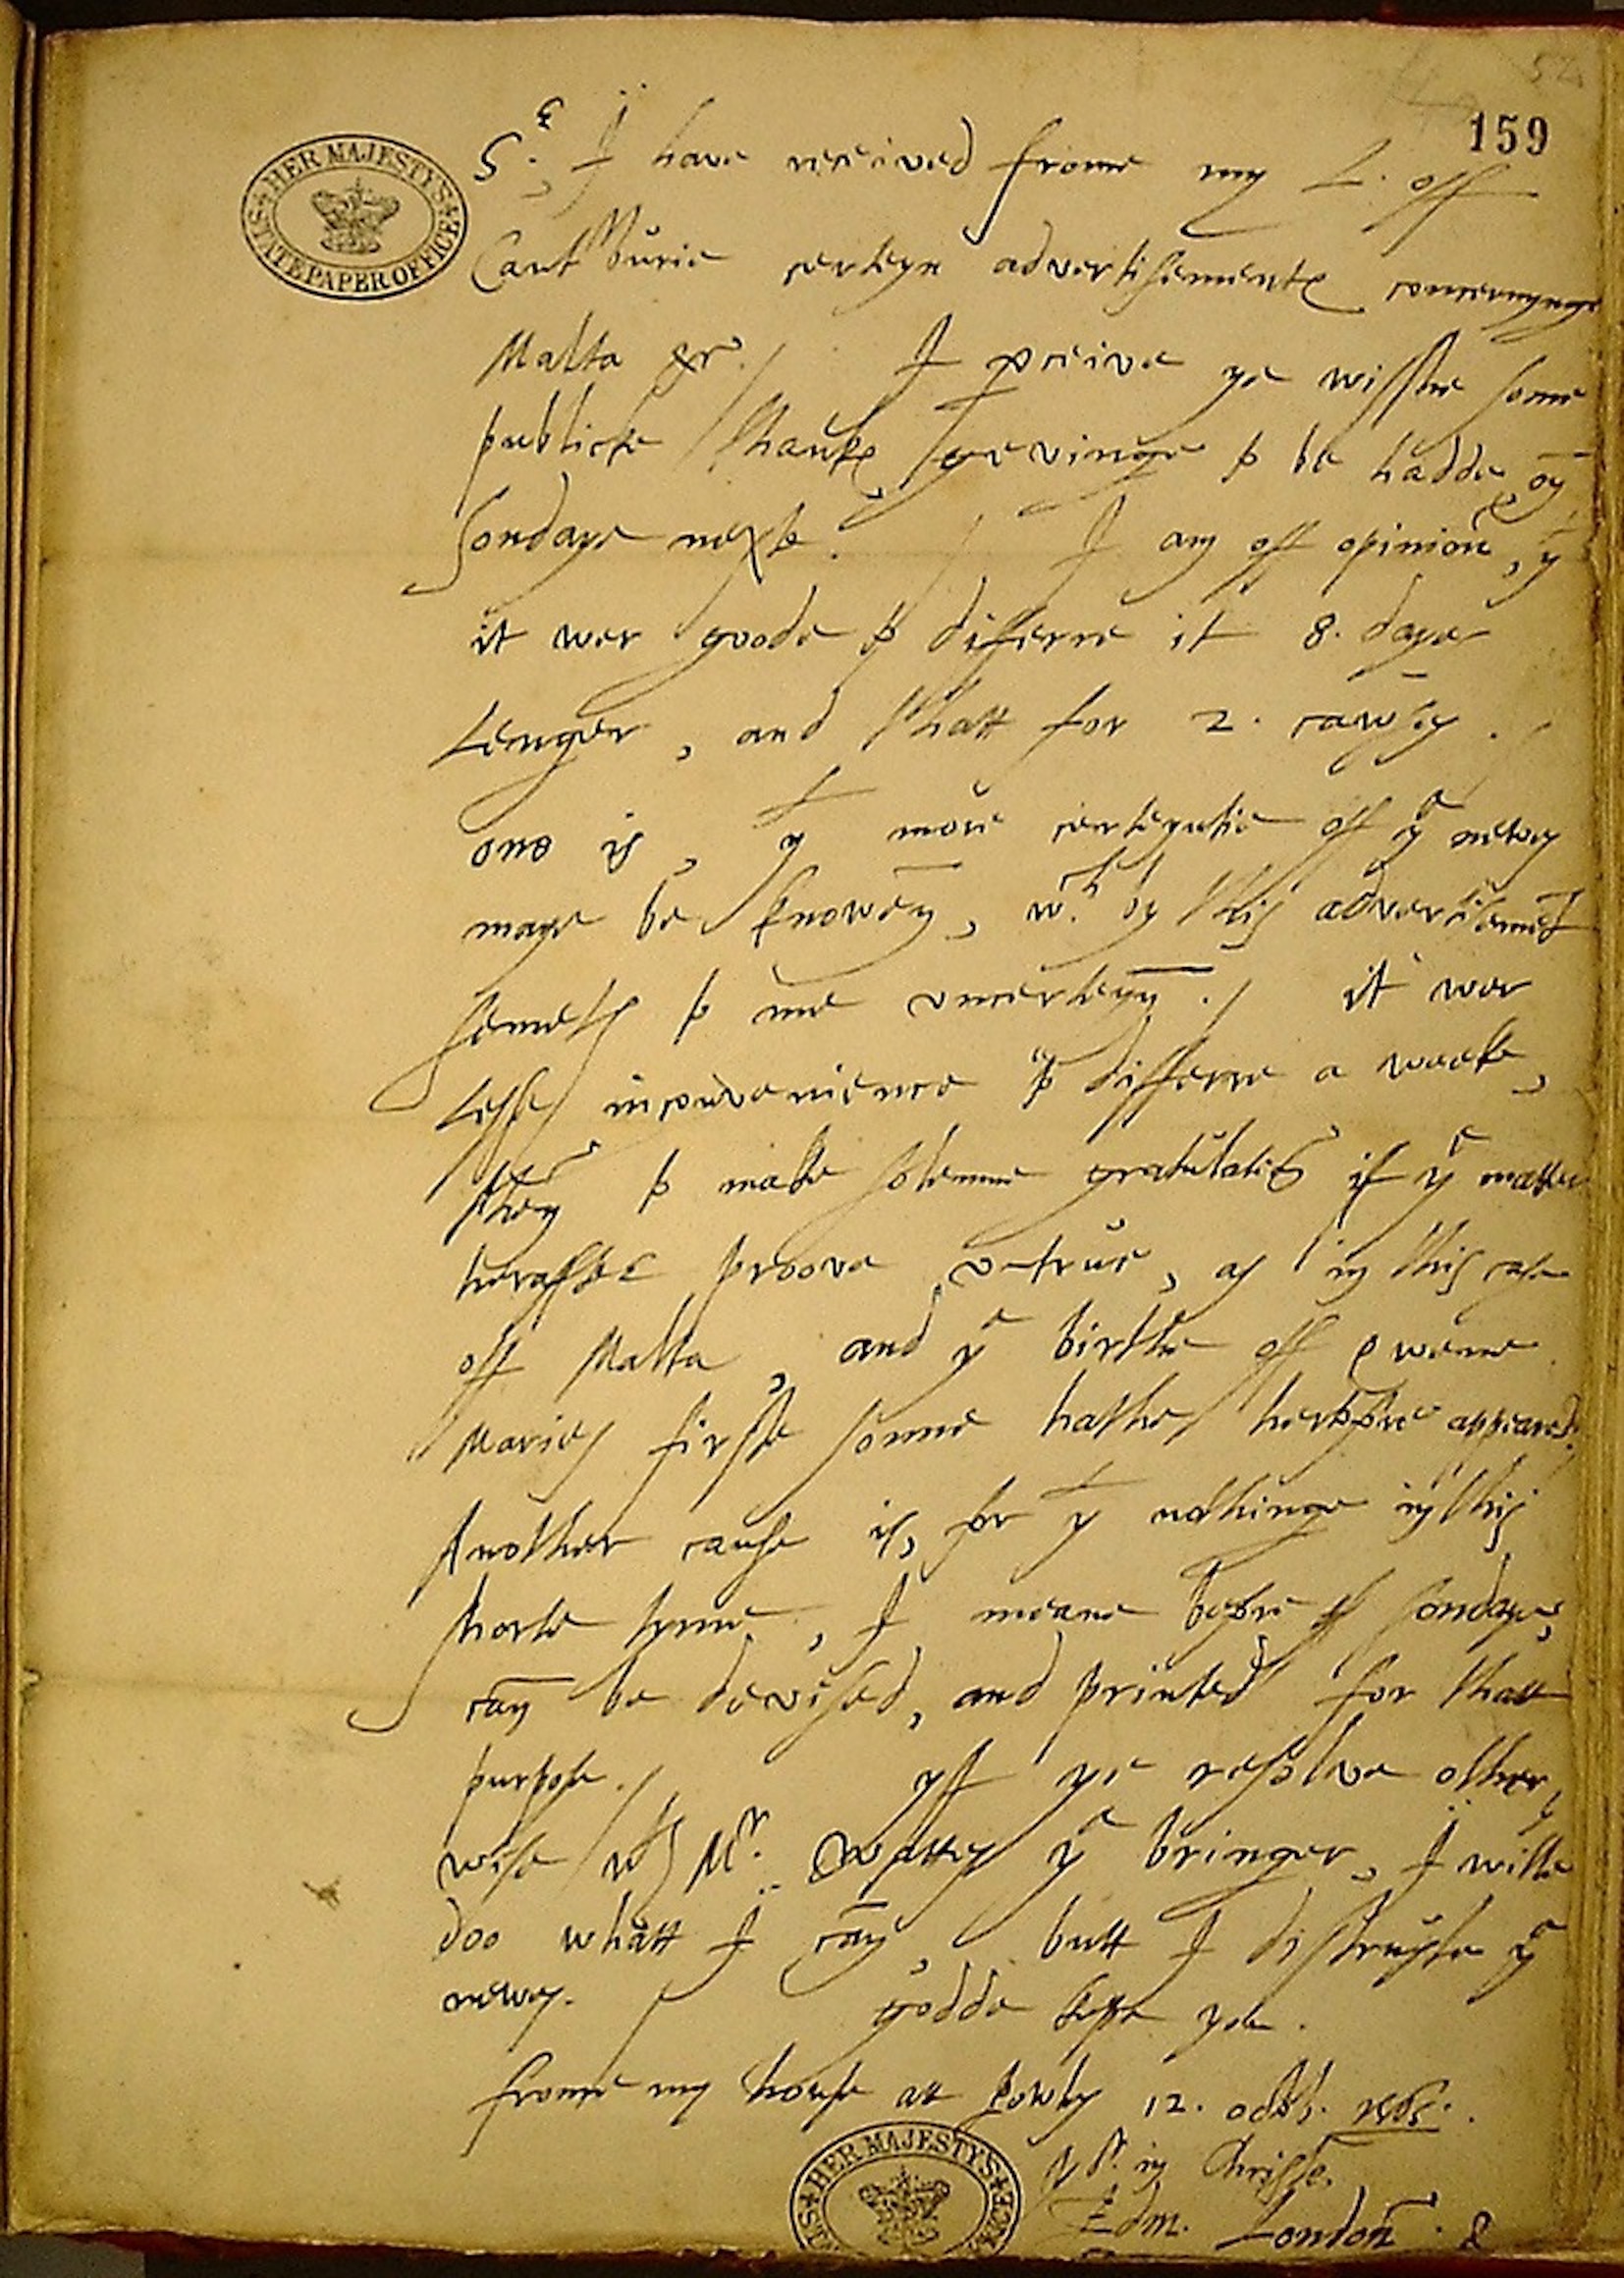 52
159
HER MAJESTY'S STATE PAPER OFFICE
Sr, I have received frome my L. off
Cantrburie certeyn advertisements concernynge
Malta &c. / I p̱ceive ye wisshe some
publicke thanks gevinge to be hadde on
Sondaye nexte. / I am off opinion, yt
it wer goode to differre it 8. dayes
lenger, and thatt for 2. cawses. /
one is, yt more certeyntie off ye news
maye be knowen, wch. by this advertisemēt
semeth to me uncerteyn. / it wer
lesse incōvenience to differre a weeke,
then to make solemne gratulatiō if ye matter
herafter proove vntrue, as in this case
off Malta, and ye birthe off Qwene
Maries firste sonne hathe hertofore appeared.
Another cause is, for yt nothinge in this
shorte tyme, I meane before Sondaye,
can be devised, and printed for thatt
purpose. / yff ye resolve other,
wise wth Mr. Wattes ye bringer, I wille
doo whatt I can, butt I distruste ye
news. / godde kepe you.
frome my howse att Powles 12. octob. 1565.
in Christe.
Edm. London.
HER MAJESTY'S